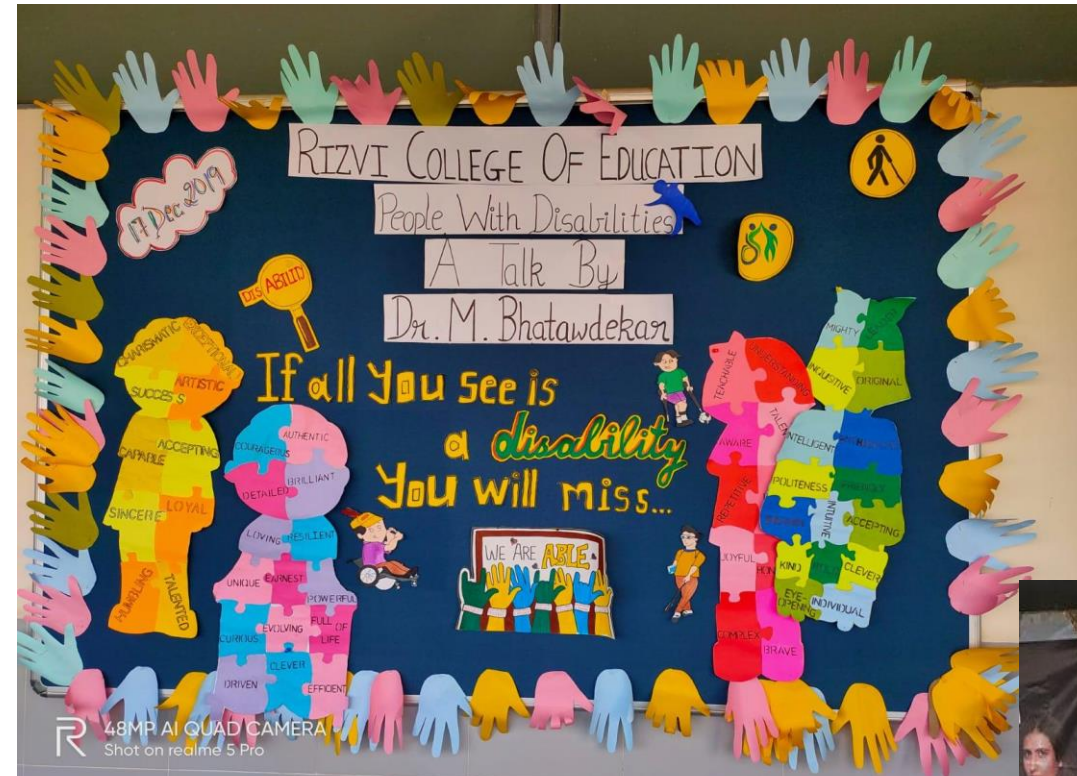 RIZVI COLLEGE OF EDUCATION
People With Disabilities
A Talk By
Dr. M. Bhatawdekar
17 Dec 2019
DISABILITY
If all you see is
a disability
You will miss...
WE ARE ABLE
CHARISMATIC
EXCEPTIONAL
SUCCESS
ARTISTIC
CAPABLE
ACCEPTING
SINCERE
LOYAL
HUMBLING
TALENTED
COURAGEOUS
AUTHENTIC
DETAILED
BRILLIANT
LOVING
RESILIENT
UNIQUE
EARNEST
POWERFUL
CURIOUS
EVOLVING
FULL OF
LIFE
CLEVER
DRIVEN
EFFICIENT
TEACHABLE
UNDERSTANDING
AWARE
REPETITIVE
JOYFUL
COMPLEX
BRAVE
MIGHTY
INQUISITIVE
ORIGINAL
INTELLIGENT
POLITENESS
INTUITIVE
ACCEPTING
KIND
CLEVER
EYE-
OPENING
INDIVIDUAL
48MP AI QUAD CAMERA
Shot on realme 5 Pro